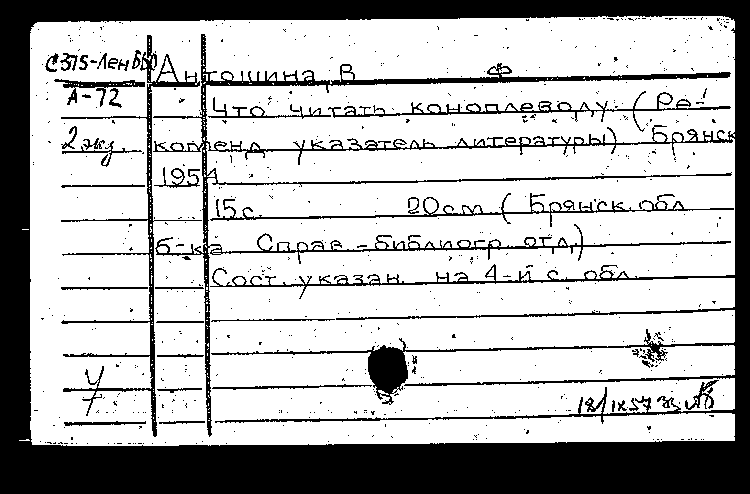 С375-Лен ББО Антошина, В Ф
А-72 Что читать коноплеводу (Ре-
2 экз. коменд указатель литературы) Брянск
1954
15 с. 20 см (Брянск. обл
б-ка Справ.-библиогр. отд.)
Сост. указан. на 4-й с. обл.
У
18/IX 57